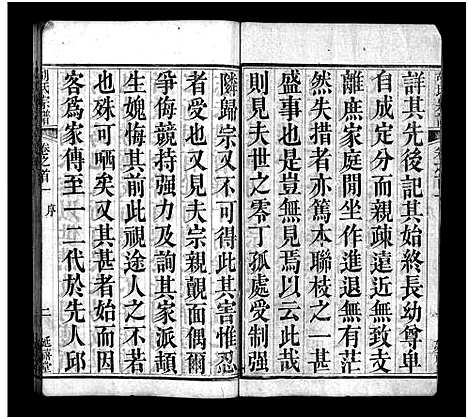 詳其先後記其始終長幼尊卑
自成定分而親疎遠近無致支
離庶家庭閒坐作進退無有茫
然失措者亦篤本聯枝之一甚
盛事也是豈無見焉以云此哉
則見夫世之零丁孤處受制强
隣歸宗又不可得此其害惟忍
者受也又見夫宗親覿面偶爾
爭侮競持强力及詢其家派頓
生媿悔其前此視途人之不若
也殊可哂矣又其甚者始而主
客爲家傳至一二代於先人邱
胡氏宗譜
卷之首
序
二
延禧堂